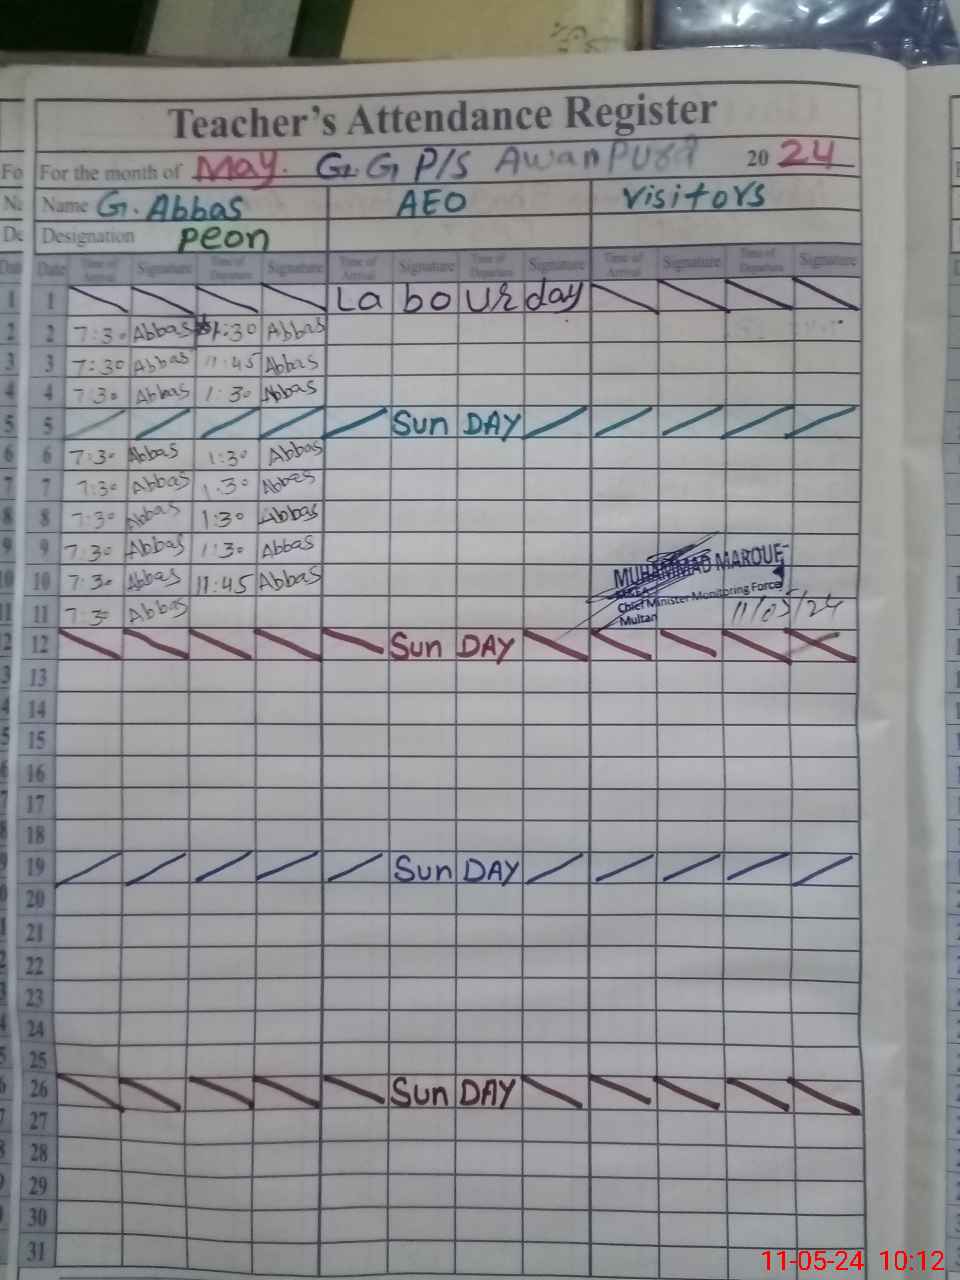 Teacher's Attendance Register
For the month of May. G.G P/S Awan Pura 20 24
Name G. Abbas AEO Visitors
Designation peon
Date Time of Arrival Signature Time of Departure Signature Time of Arrival Signature Time of Departure Signature Time of Arrival Signature Time of Departure Signature
1 Labour day
2 7:30 Abbas 1:30 Abbas
3 7:30 Abbas 11:45 Abbas
4 7:30 Abbas 1:30 Abbas
5 Sun DAY
6 7:30 Abbas 1:30 Abbas
7 7:30 Abbas 1:30 Abbas
8 7:30 Abbas 1:30 Abbas
9 7:30 Abbas 1:30 Abbas
MUHAMMAD MAROUF
10 7:30 Abbas 11:45 Abbas
Chief Minister Monitoring Force
Multan
11 7:30 Abbas 11/05/24
12 Sun DAY
13
14
15
16
17
18
19 Sun DAY
20
21
22
23
24
25
26 Sun DAY
27
28
29
30
31
11-05-24 10:12